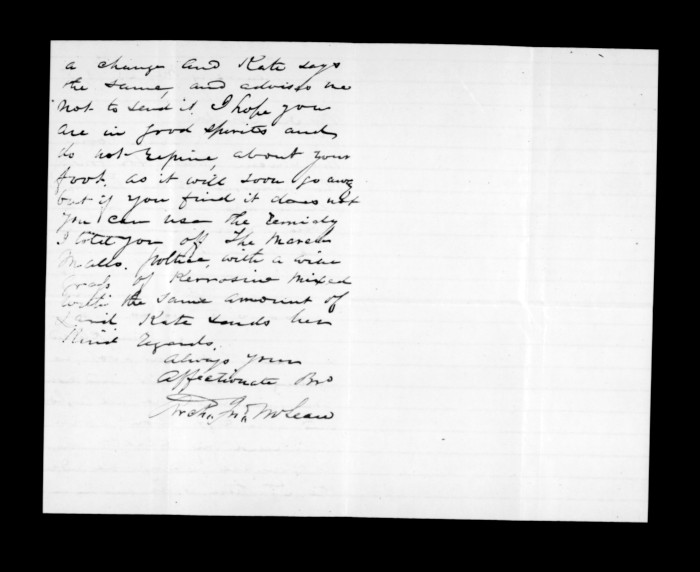 a change and Kate says
the same, and advises me
not to send it. I hope you
are in good spirits and
do not repine, about your
foot, as it will soon go away
but if you find it does not
you can use the remidy
I told you off The Marsh
Mallo. poltice, with a wine
Glass of Kerrosine mixed
with the same amount of
Lard Kate sends her
Kind regards,
Always yours
Affectionate Bro
Archd. Jno. McLean